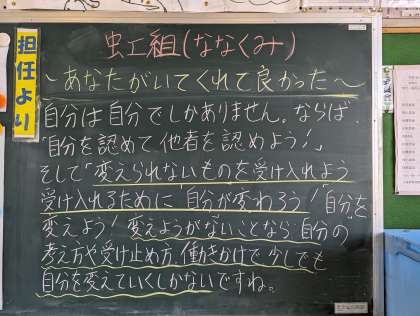 担任より
虹組(ななくみ)
～あなたがいてくれて良かった～
自分は自分でしかありません。ならば、
「自分を認めて他者を認めよう!」
そして「変えられないものを受け入れよう
受け入れるために「自分が変わろう!」自分を
変えよう!変えようがないことなら自分の
考え方や受け止め方、働きかけで少しでも
自分を変えていくしかないですね。